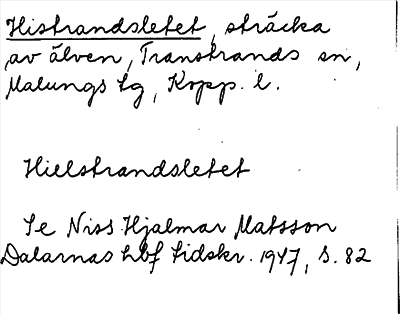 Histrandsletet, sträcka
av älven, Transtrands sn,
Malungs tg, Kopp. l.
Hielstrandsletet
Se Niss Hjalmar Matsson
Dalarnas hbf tidskr. 1947, s. 82